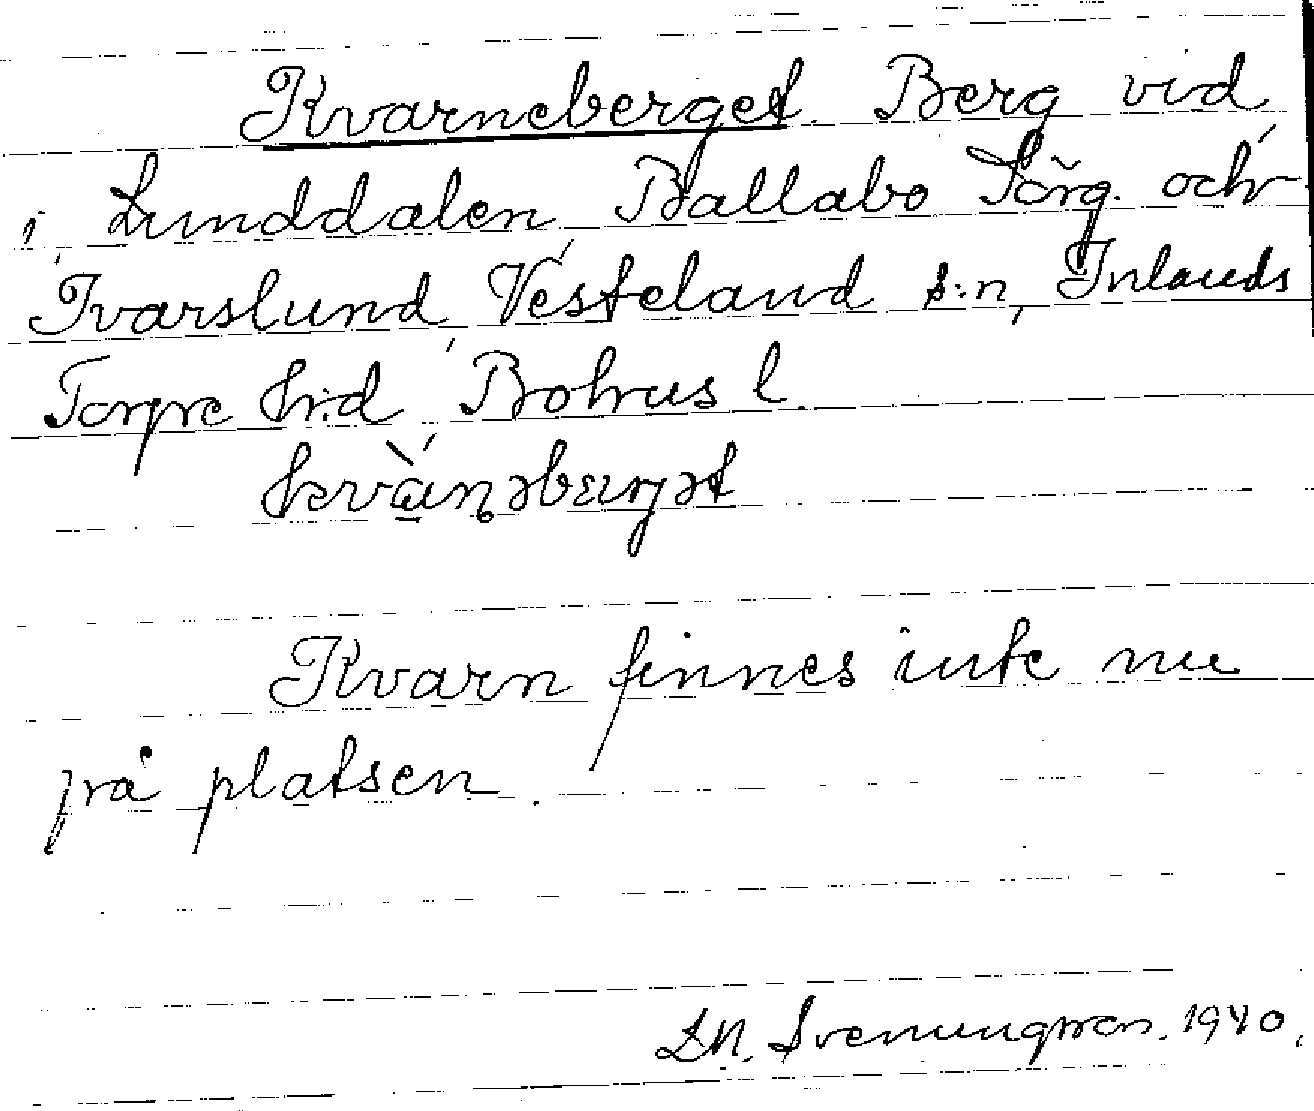 Kvarneberget. Berg vid
i Lunddalen, Ballabo Sörg. och
Ivarslund, Vesteland s:n, Inlands
Torpe hrd, Bohus l.
Kvarn finnes inte nu
på platsen.
1940.